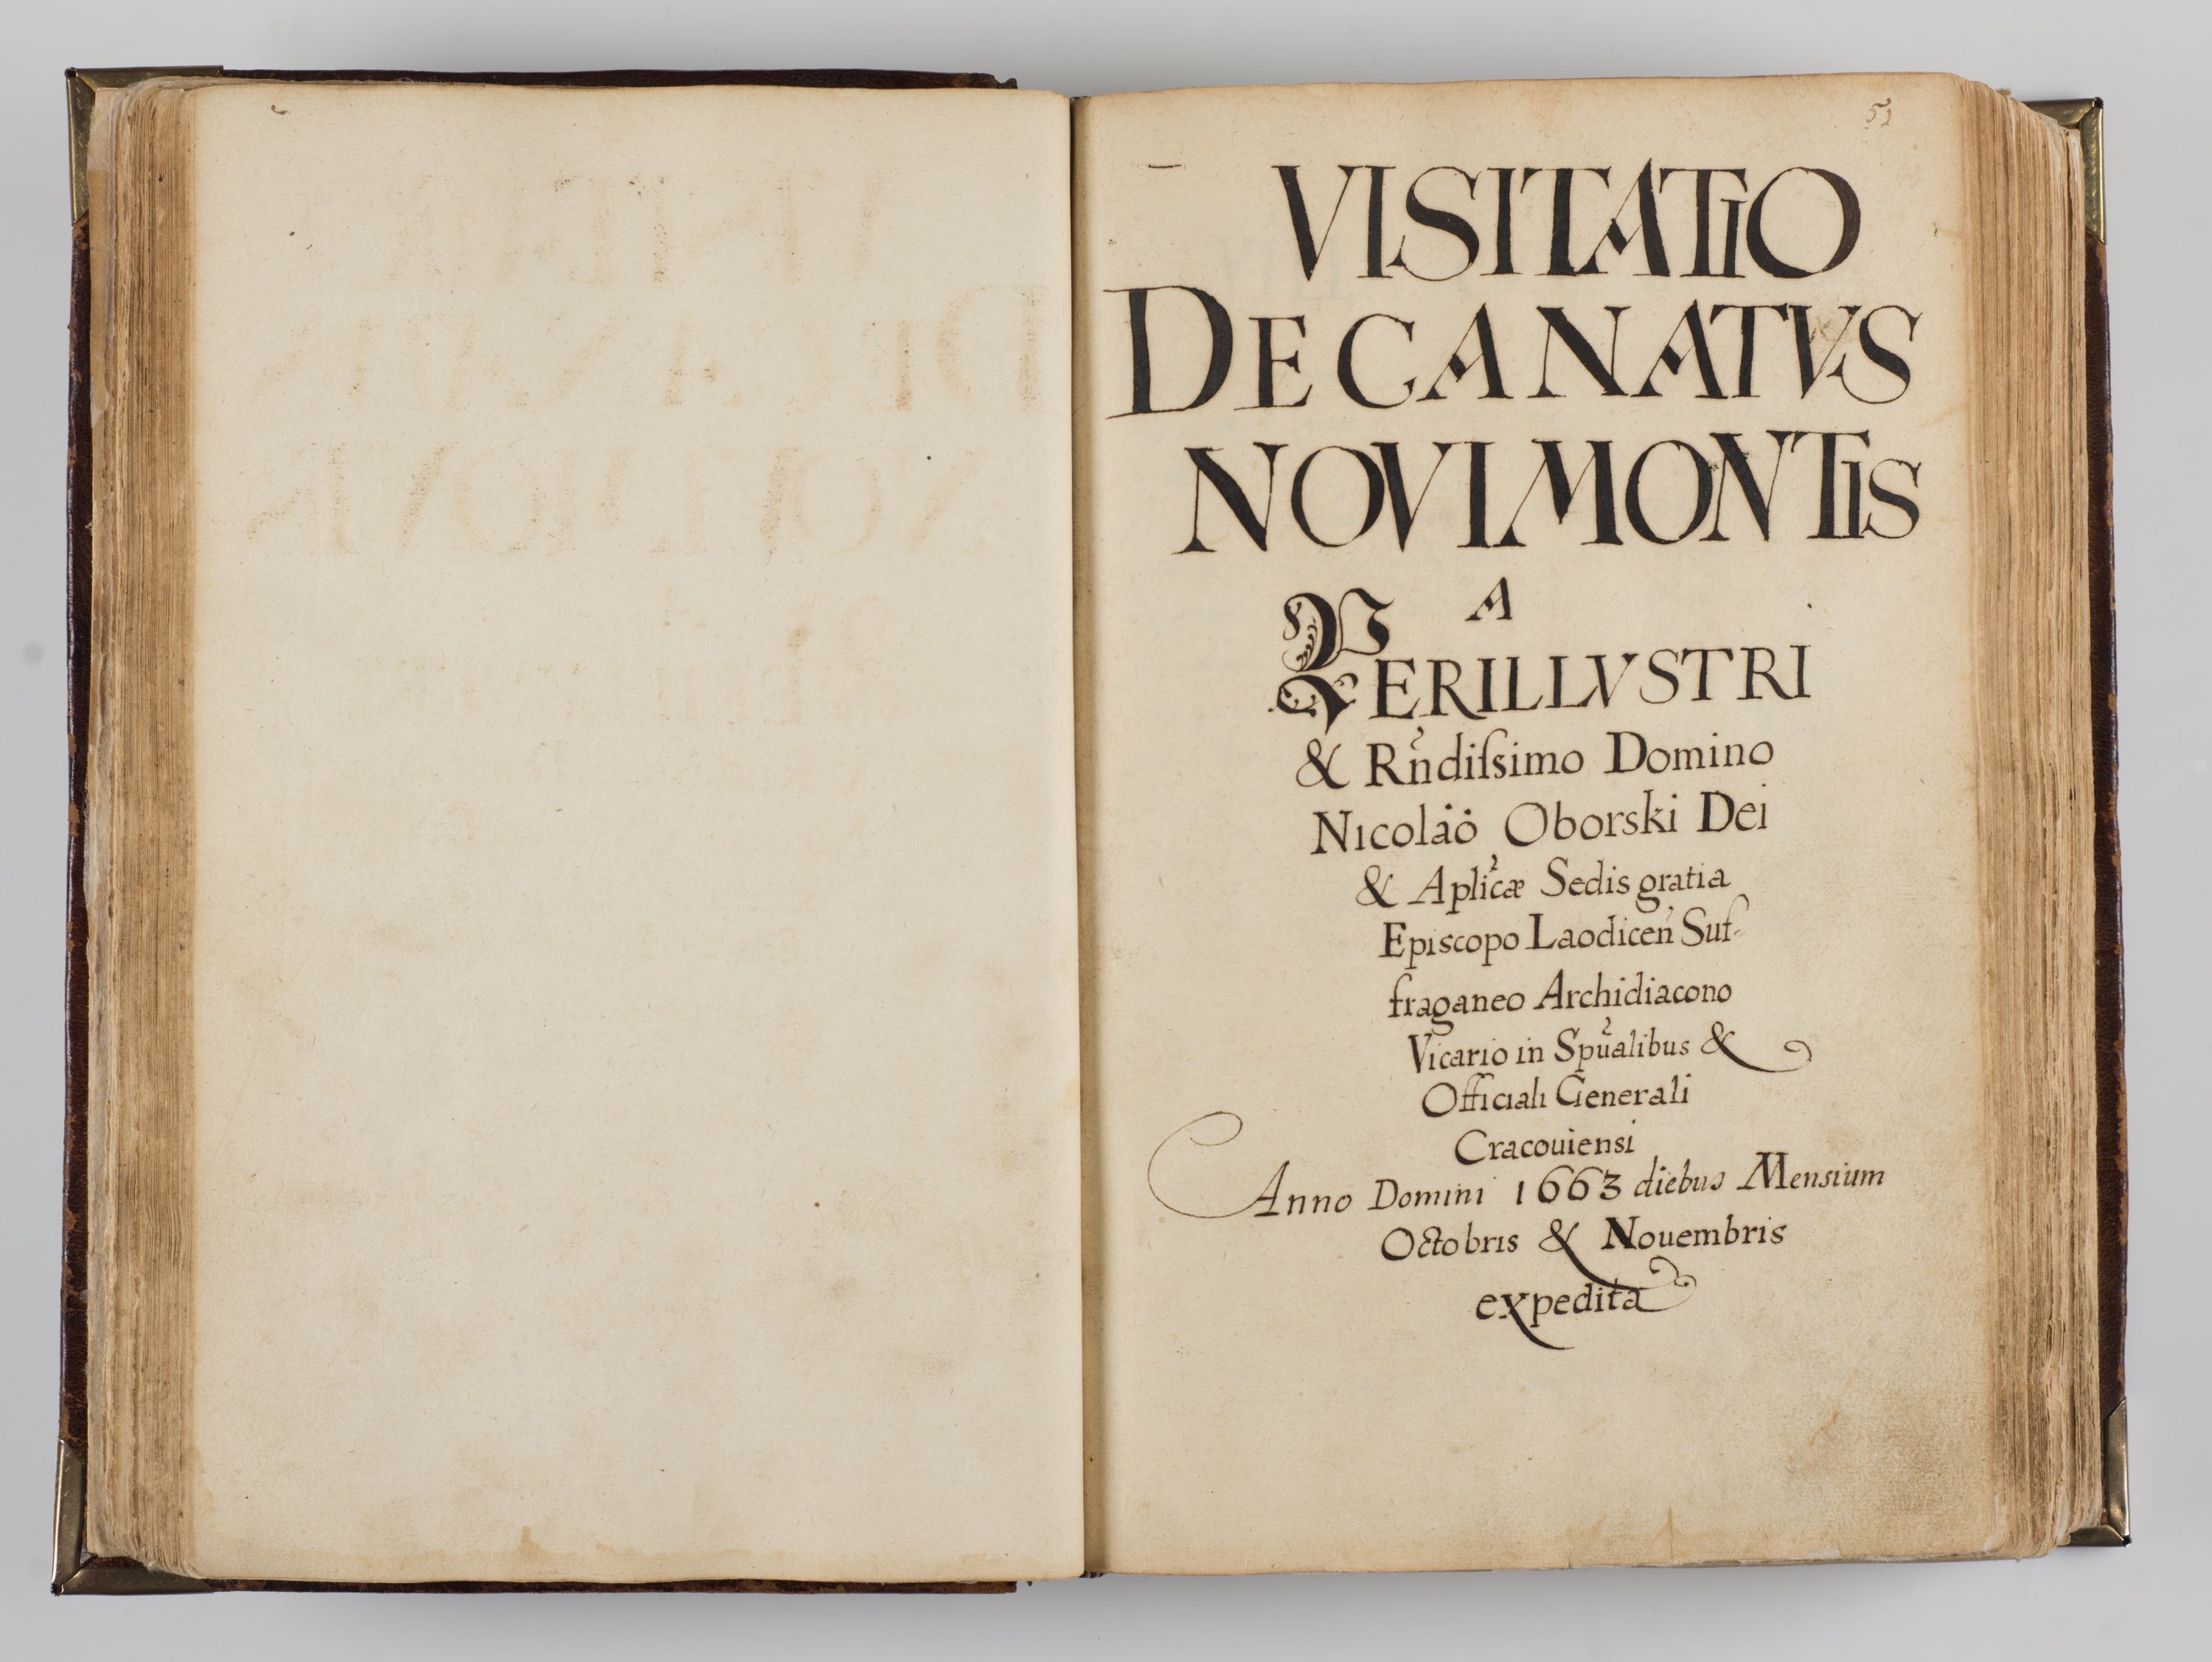 51
VISITATIO
DECANATVS
NOVI MONTIS
A
PERILLVSTRI
& Rñdiſsimo Domino
Nicolao Oborski Dei
& Aplicæ Sedis gratia
Episcopo Laodiceñ Suf-
fraganeo Archidiacono
Vicario in Spũalibus &
Officiali Generali
Cracouiensi
Anno Domini 1663 diebus Mensium
Octobris & Nouembris
expedita